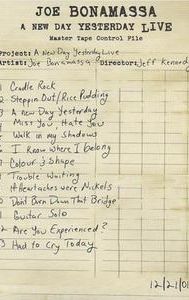 JOE BONAMASSA
A NEW DAY YESTERDAY LIVE
Master Tape Control File
Project: A New Day Yesterday Live
Artist: Joe Bonamassa Director: Jeff Kennedy
1 Cradle Rock
2 Steppin Out/Rice Pudding
3 A new Day Yesterday
4 Miss You, Hate You
5 Walk in my Shadows
6 I Know Where I belong
7 Colour & Shape
8 Trouble Waiting
9 If Heartaches were Nickels
10 Don't Burn Down That Bridge
11 Guitar Solo
12 Are You Experienced?
13 Had to Cry Today
12/21/01